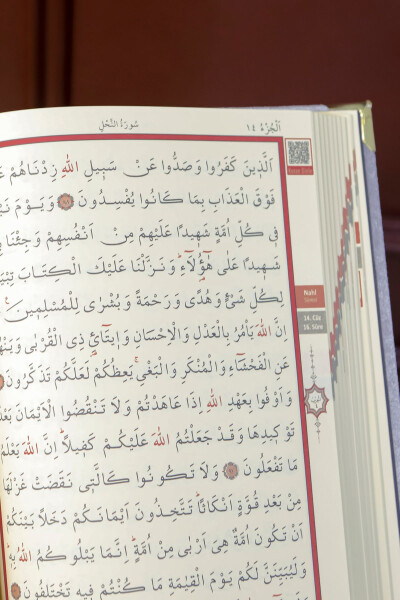 سُورَةُ النَّحْلِ
اَلْجُزْءُ ١٤
اَلَّذِينَ كَفَرُوا وَصَدُّوا عَنْ سَبِيلِ اللّٰهِ زِدْنَاهُمْ
فَوْقَ الْعَذَابِ بِمَا كَانُوا يُفْسِدُونَ ﴿٨٨﴾ وَيَوْمَ
فِى كُلِّ اُمَّةٍ شَهِيدًا عَلَيْهِمْ مِنْ اَنْفُسِهِمْ وَجِئْنَا
شَهِيدًا عَلٰى هٰٓؤُ۬لَٓاءِ وَنَزَّلْنَا عَلَيْكَ الْكِتَابَ
لِكُلِّ شَىْءٍ وَهُدًى وَرَحْمَةً وَبُشْرٰى لِلْمُسْلِمِينَ
اِنَّ اللّٰهَ يَاْمُرُ بِالْعَدْلِ وَالْاِحْسَانِ وَاِيتَٓائِ ذِى الْقُرْبٰى
عَنِ الْفَحْشَٓاءِ وَالْمُنْكَرِ وَالْبَغْىِ يَعِظُكُمْ لَعَلَّكُمْ تَذَكَّرُونَ
وَاَوْفُوا بِعَهْدِ اللّٰهِ اِذَا عَاهَدْتُمْ وَلَا تَنْقُضُوا الْاَيْمَانَ
تَوْكِيدِهَا وَقَدْ جَعَلْتُمُ اللّٰهَ عَلَيْكُمْ كَفِيلًا اِنَّ اللّٰهَ يَعْلَمُ
مَا تَفْعَلُونَ ﴿٩١﴾ وَلَا تَكُونُوا كَالَّتِى نَقَضَتْ غَزْلَهَا
مِنْ بَعْدِ قُوَّةٍ اَنْكَاثًا تَتَّخِذُونَ اَيْمَانَكُمْ دَخَلًا بَيْنَكُمْ
اَنْ تَكُونَ اُمَّةٌ هِىَ اَرْبٰى مِنْ اُمَّةٍ اِنَّمَا يَبْلُوكُمُ اللّٰهُ بِهِ
وَلَيُبَيِّنَنَّ لَكُمْ يَوْمَ الْقِيٰمَةِ مَا كُنْتُمْ فِيهِ تَخْتَلِفُونَ
Nahl
Sûresi
14. Cüz
16. Sûre